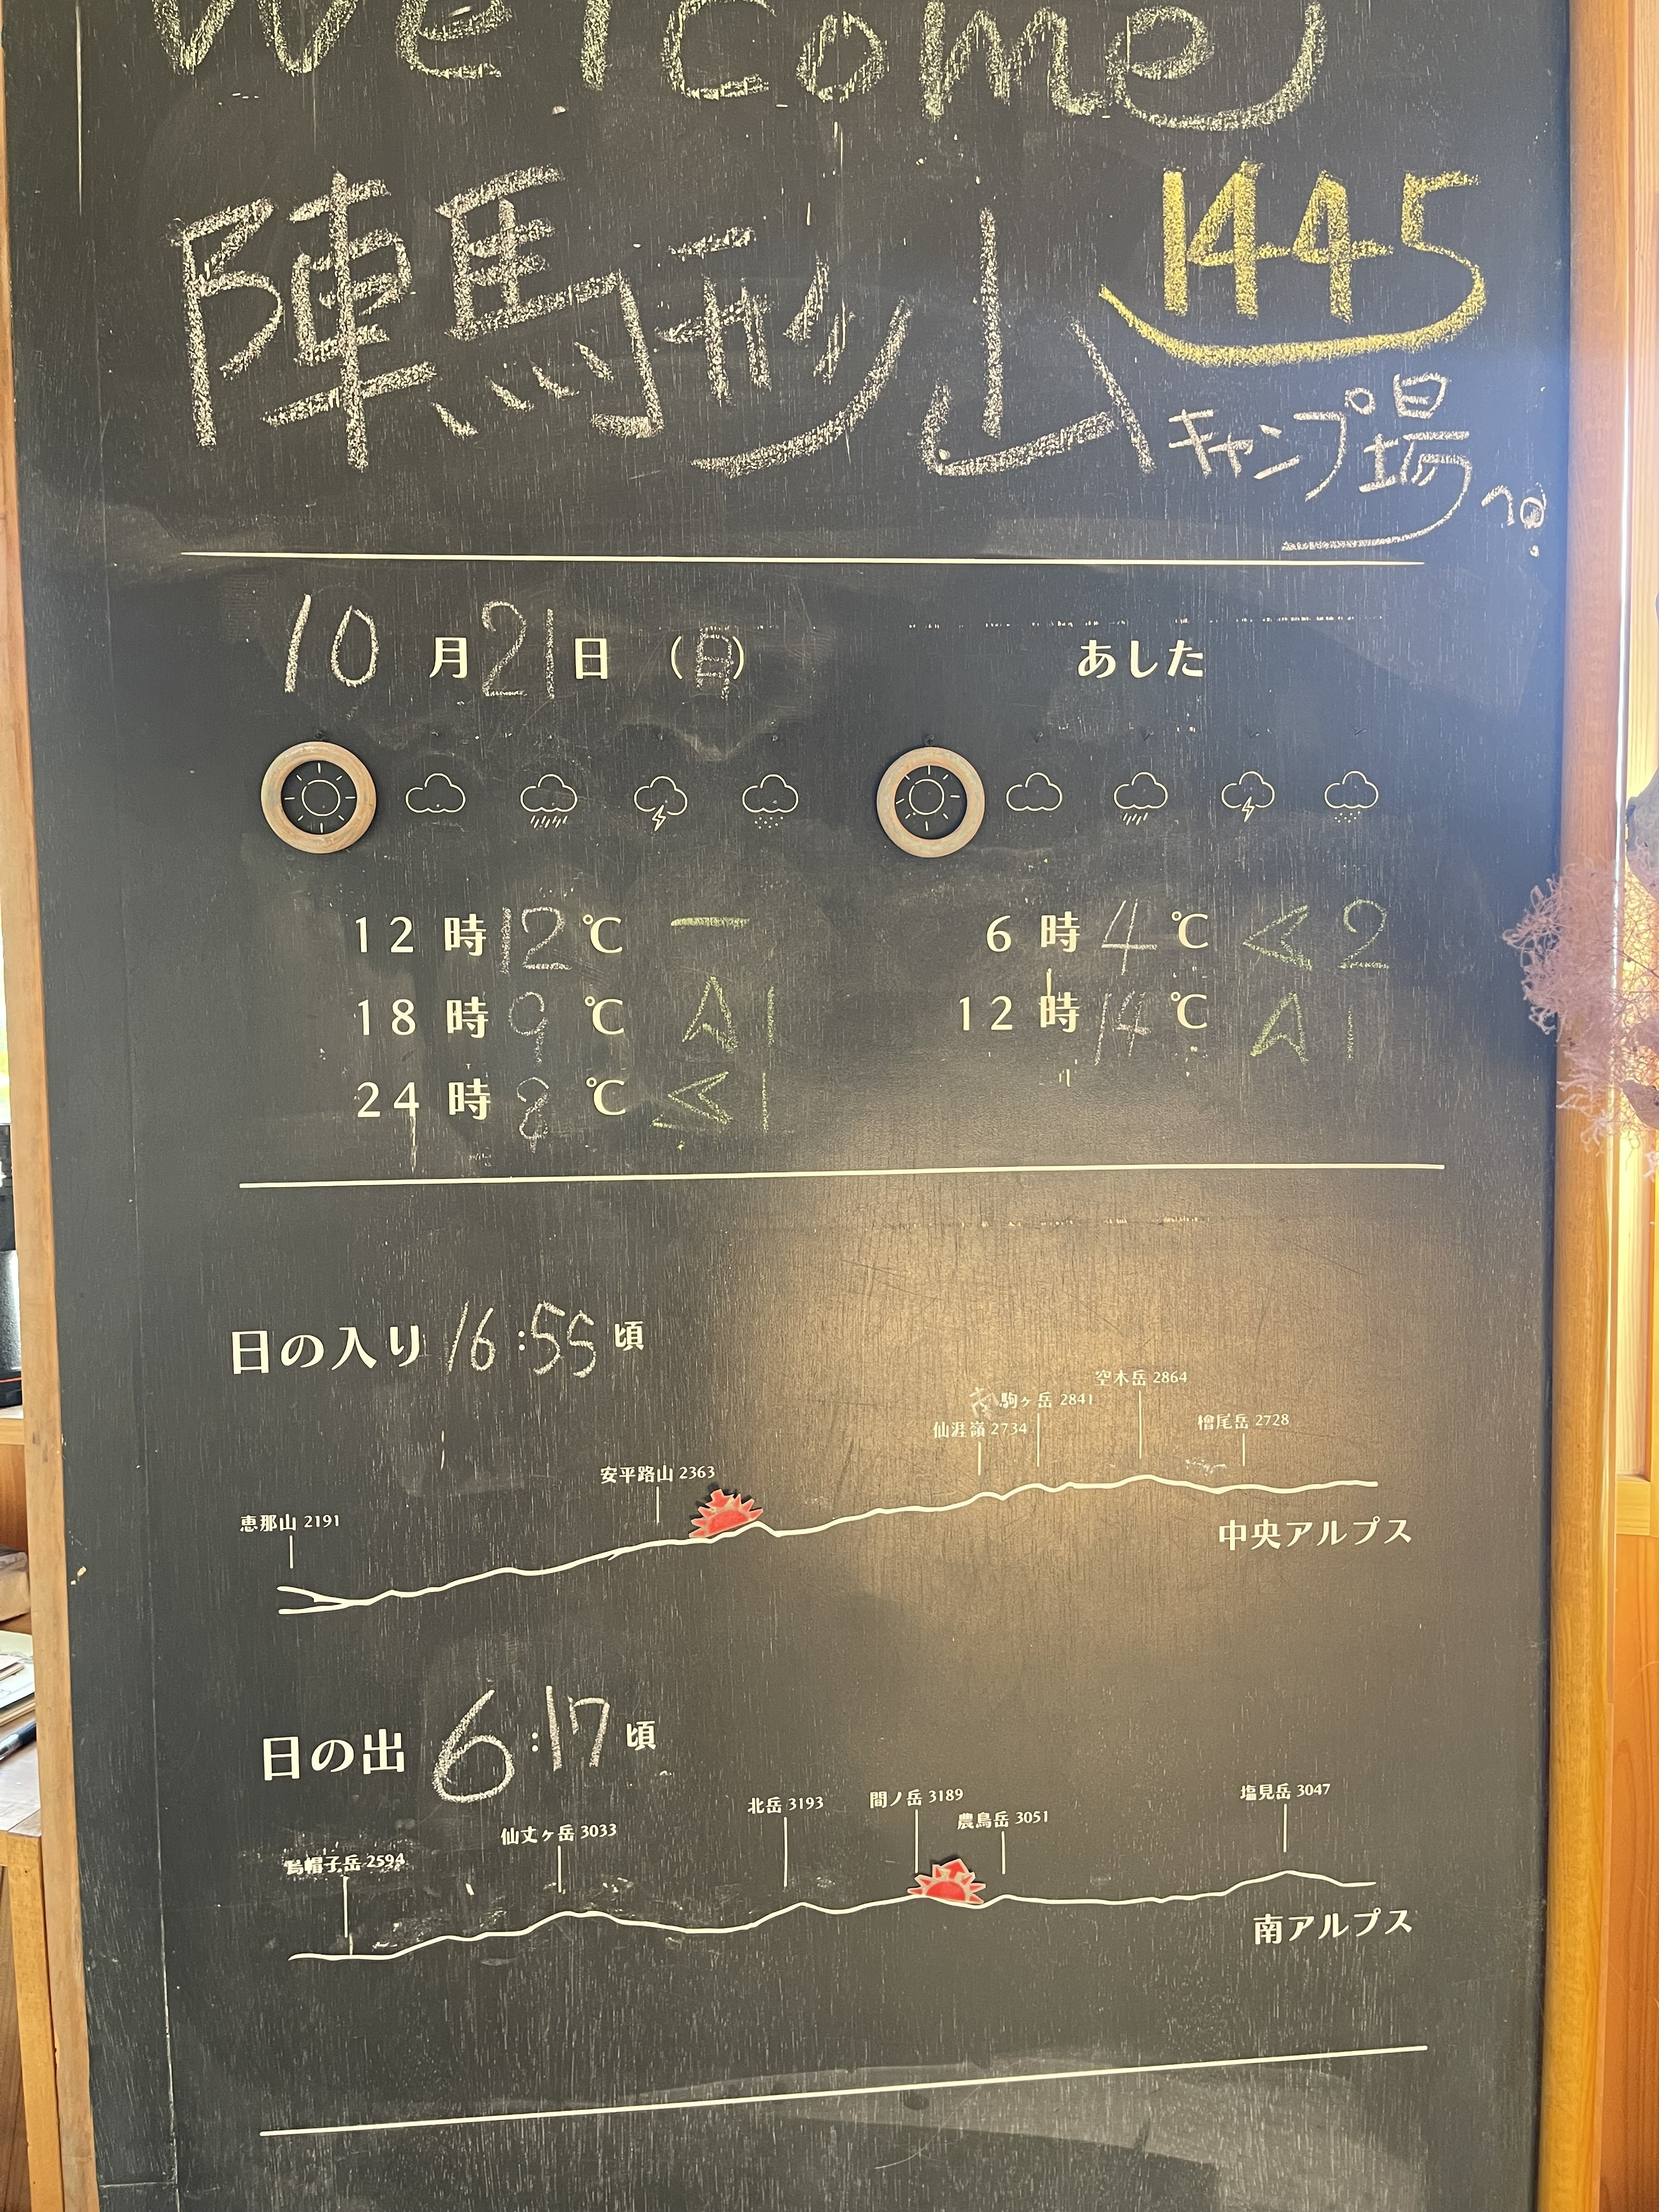 Welcome
陣馬形山 1445
キャンプ場へ
10月21日（月） あした
12時 12℃ 6時 4℃ 2
18時 9℃ 1 12時 14℃ 1
24時 8℃ 1
日の入り 16:55頃
空木岳 2864
南駒ヶ岳 2841
仙涯嶺 2734
檜尾岳 2728
安平路山 2363
恵那山 2191
中央アルプス
日の出 6:17頃
塩見岳 3047
間ノ岳 3189
北岳 3193
農鳥岳 3051
仙丈ヶ岳 3033
烏帽子岳 2594
南アルプス